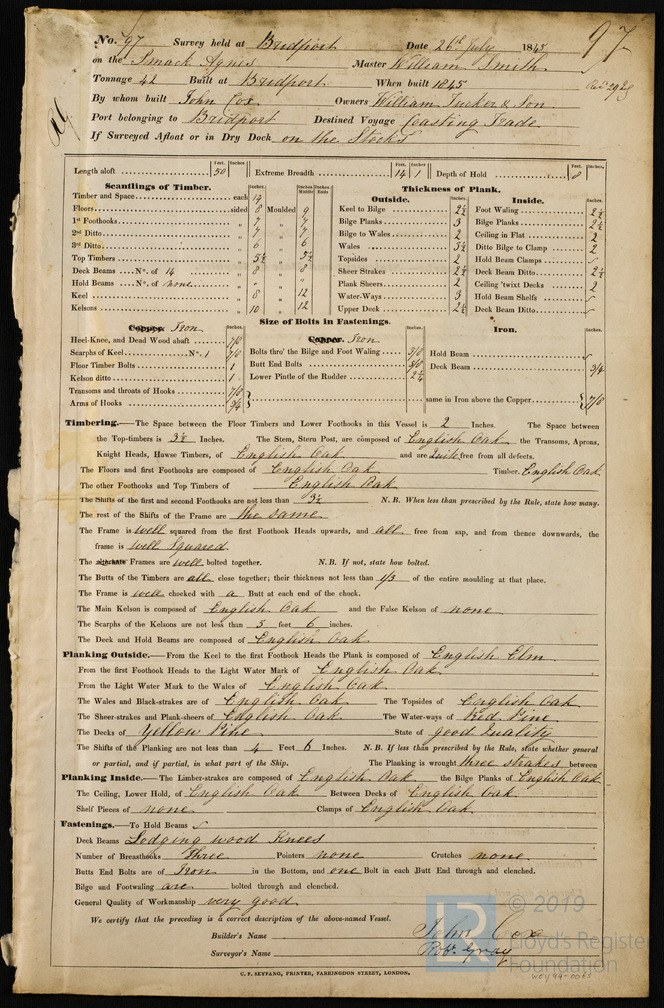 No. 97 Survey held at Bridport Date 26th July 1845 97
on the Smack Agnes Master William Smith
Tonnage 42 Built at Bridport When built 1845
By whom built John Cox Owners William Tucker & Son
Port belonging to Bridport Destined Voyage Coasting Trade
If Surveyed Afloat or in Dry Dock on the Stocks
Length aloft 50 Extreme Breadth 14 1 Depth of Hold 8
Feet. Inches. Feet. Inches. Feet. Inches.
Scantlings of Timber. Inches. Inches Middle Inches Ends Thickness of Plank.
Outside. Inches. Inside. Inches.
Timber and Space each 14 Keel to Bilge 2½ Foot Waling 2½
Floors sided 8 Moulded 9 Bilge Planks 3 Bilge Planks 2½
1st Foothooks „ 7 „ 7 Bilge to Wales 2 Ceiling in Flat 2
2nd Ditto „ 7 „ 7 Wales 3½ Ditto Bilge to Clamp 2
3rd Ditto „ 6 „ 6 Topsides 2 Hold Beam Clamps
Top Timbers „ 5½ „ 5½ Sheer Strakes 2½ Deck Beam Ditto 2½
Deck Beams No. of 14 „ 8 „ 8 Plank Sheers 2 Ceiling 'twixt Decks 2
Hold Beams No. of none „ „ Water-Ways 3 Hold Beam Shelfs
Keel „ 8 „ 12 Upper Deck 2½ Deck Beam Ditto
Kelsons „ 10 „ 12
Size of Bolts in Fastenings.
Copper. Iron Inches. Copper. Iron Inches. Iron. Inches.
Heel-Knee, and Dead Wood abaft 7/8
Scarphs of Keel No. 1 7/8 Bolts thro' the Bilge and Foot Waling 5/8 Hold Beam
Floor Timber Bolts 1 Butt End Bolts 5/8 Deck Beam 3/4
Kelson ditto 1 Lower Pintle of the Rudder 2¼
Transoms and throats of Hooks 7/8
Arms of Hooks 3/4 same in Iron above the Copper 7/8
Timbering.—The Space between the Floor Timbers and Lower Foothooks in this Vessel is 2 Inches. The Space between
the Top-timbers is 3½ Inches. The Stem, Stern Post, are composed of English Oak the Transoms, Aprons,
Knight Heads, Hawse Timbers, of English Oak and are Quite free from all defects.
The Floors and first Foothooks are composed of English Oak Timber. English Oak
The other Foothooks and Top Timbers of English Oak
The Shifts of the first and second Foothooks are not less than 3½ N.B. When less than prescribed by the Rule, state how many.
The rest of the Shifts of the Frame are the same
The Frame is well squared from the first Foothook Heads upwards, and all free from sap, and from thence downwards, the
frame is well squared
The alternate Frames are well bolted together. N.B. If not, state how bolted.
The Butts of the Timbers are all close together; their thickness not less than 1/3 of the entire moulding at that place.
The Frame is well chocked with a Butt at each end of the chock.
The Main Kelson is composed of English Oak and the False Kelson of none
The Scarphs of the Kelsons are not less than 5 feet 6 inches.
The Deck and Hold Beams are composed of English Oak
Planking Outside.—From the Keel to the first Foothook Heads the Plank is composed of English Elm
From the first Foothook Heads to the Light Water Mark of English Oak
From the Light Water Mark to the Wales of English Oak
The Wales and Black-strakes are of English Oak The Topsides of English Oak
The Sheer-strakes and Plank-sheers of English Oak The Water-ways of Red Pine
The Decks of Yellow Pine State of good Quality
The Shifts of the Planking are not less than 4 Feet 6 Inches. N.B. If less than prescribed by the Rule, state whether general
or partial, and if partial, in what part of the Ship. The Planking is wrought three strakes between
Planking Inside.—The Limber-strakes are composed of English Oak the Bilge Planks of English Oak
The Ceiling, Lower Hold, of English Oak Between Decks of English Oak
Shelf Pieces of none Clamps of English Oak
Fastenings.—To Hold Beams
Deck Beams Lodging wood Knees
Number of Breasthooks Three Pointers none Crutches none
Butts End Bolts are of Iron in the Bottom, and one Bolt in each Butt End through and clenched.
Bilge and Footwaling are bolted through and clenched.
General Quality of Workmanship very good
We certify that the preceding is a correct description of the above-named Vessel.
Builder's Name John Cox
Surveyor's Name Robt. Gray
C. F. SEYFANG, PRINTER, FARRINGDON STREET, LONDON.
LR © 2019
Lloyd's Register
Foundation